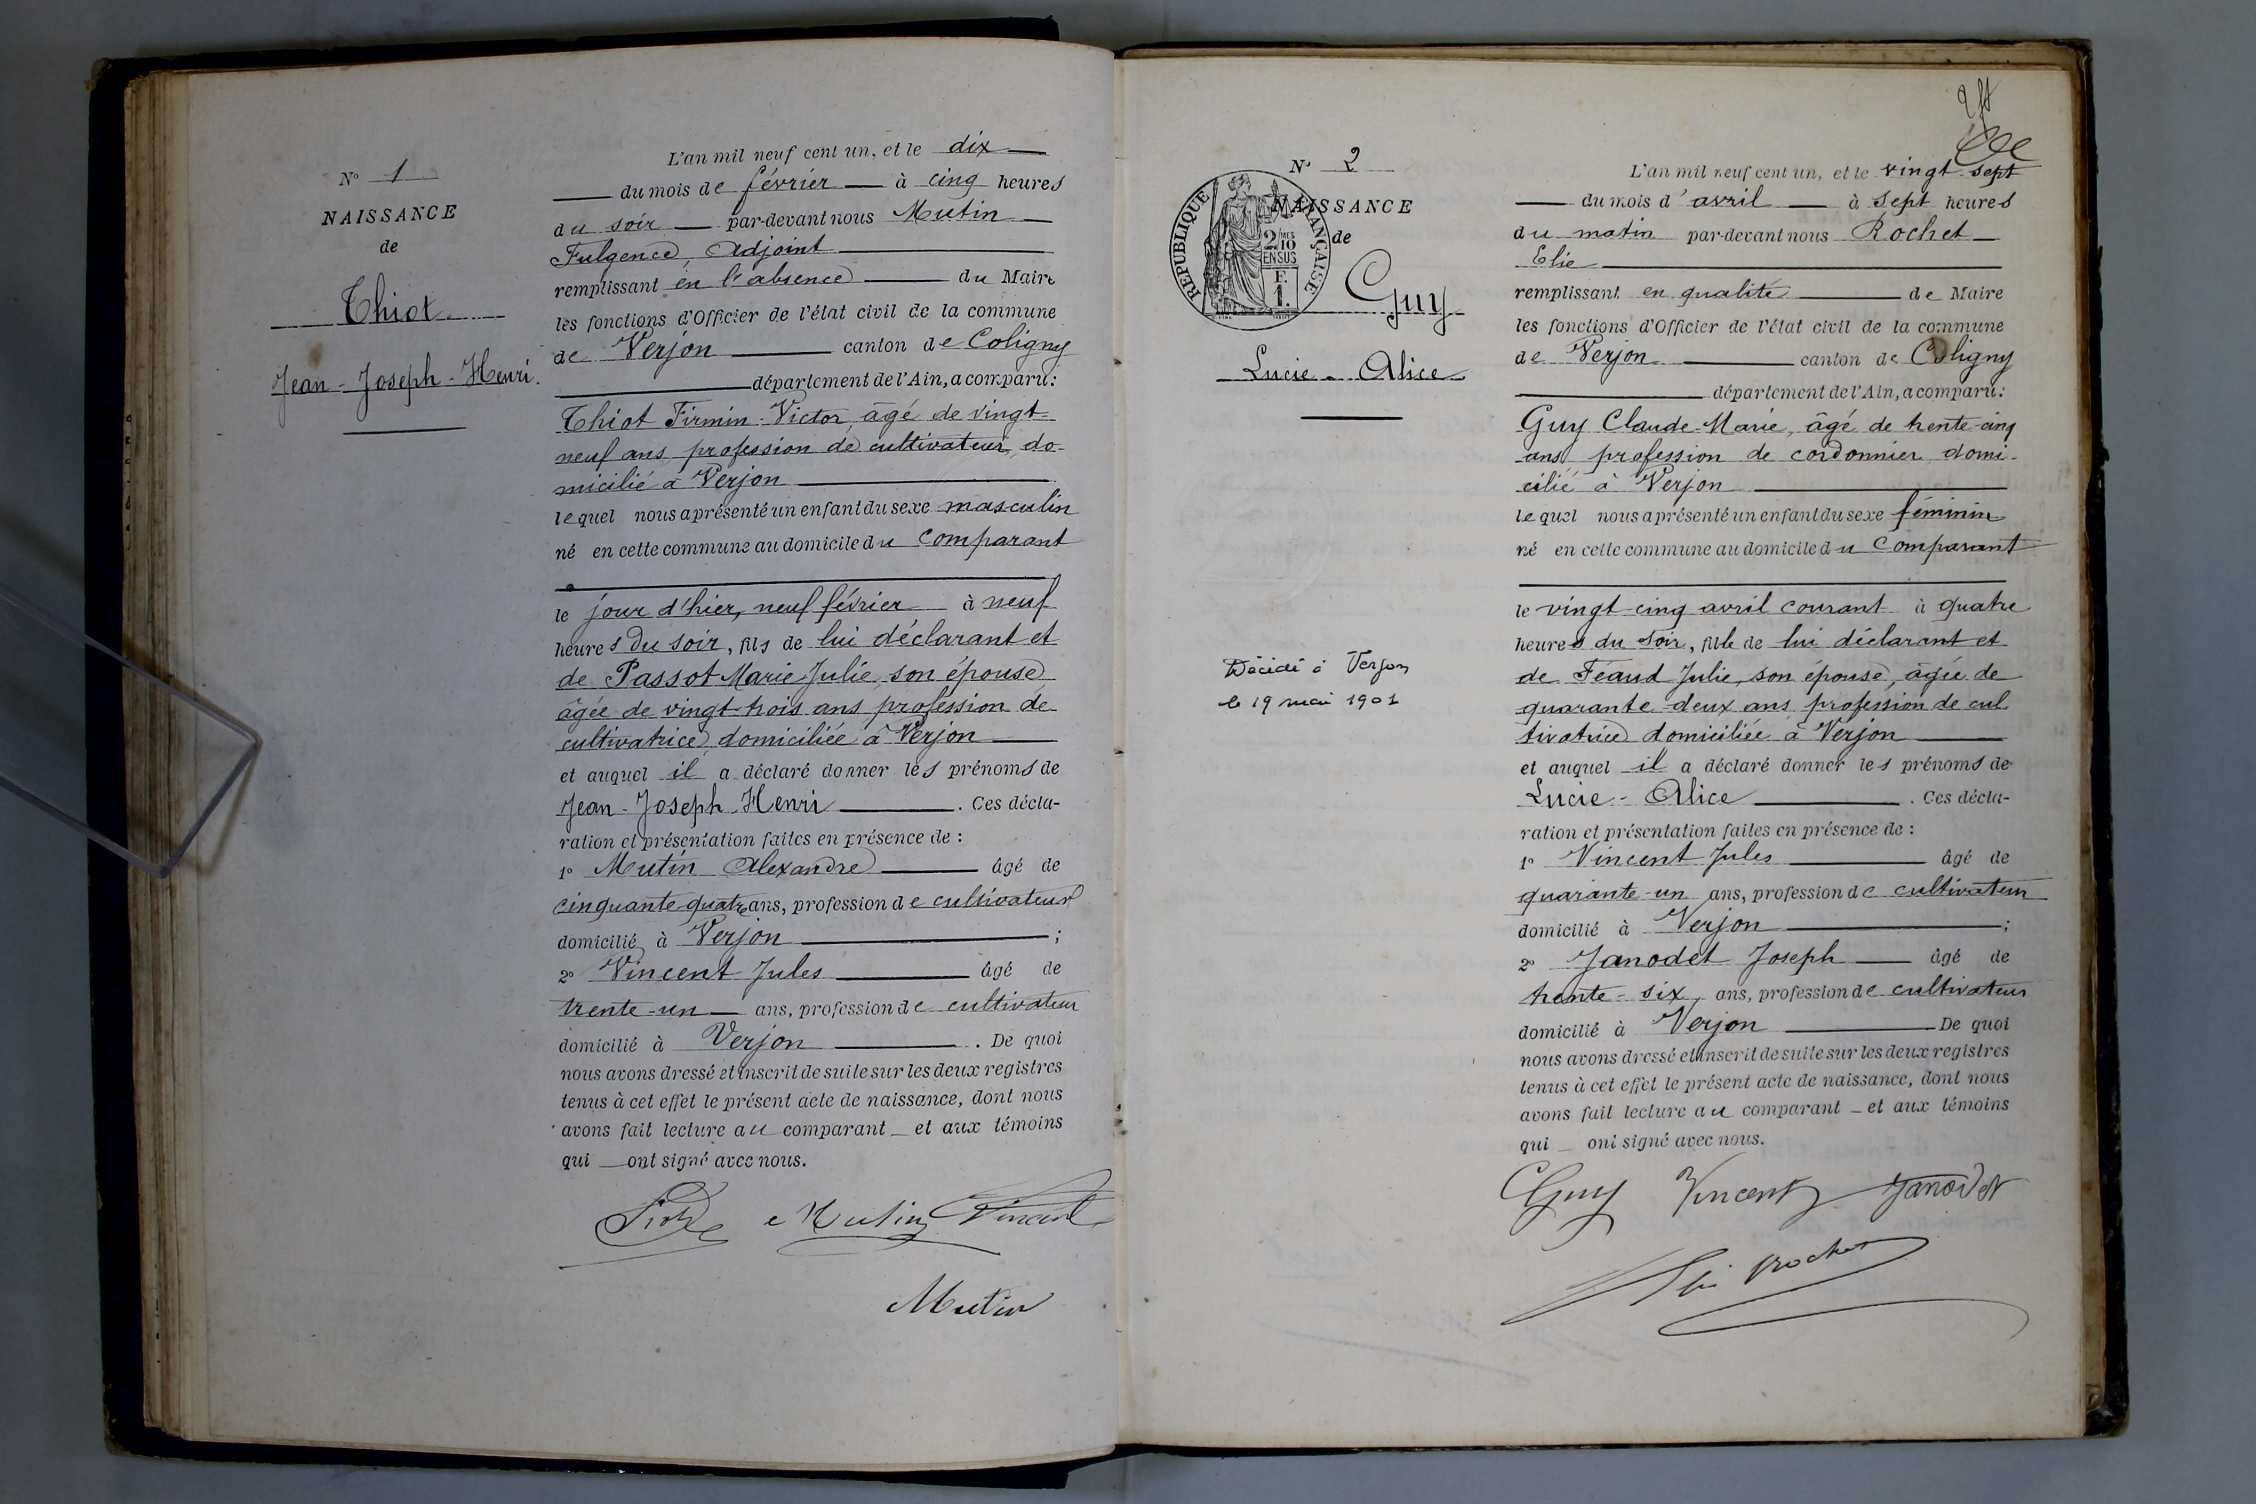 N° 1
NAISSANCE
de
Thiot
Jean-Joseph-Henri.
L'an mil neuf cent un, et le dix
du mois de février à cinq heures
du soir par-devant nous Mutin
Fulgence, Adjoint
remplissant en l'absence du Maire
les fonctions d'Officier de l'état civil de la commune
de Verjon canton de Coligny
département de l'Ain, a comparu:
Thiot Firmin-Victor, âgé de vingt-
neuf ans, profession de cultivateur, do-
micilié à Verjon
lequel nous a présenté un enfant du sexe masculin
né en cette commune au domicile du comparant
le jour d'hier, neuf février à neuf
heures du soir, fils de lui déclarant et
de Passot Marie-Julie, son épouse,
âgée de vingt-trois ans, profession de
cultivatrice, domiciliée à Verjon
et auquel il a déclaré donner les prénoms de
Jean-Joseph-Henri. Ces décla-
ration et présentation faites en présence de :
1° Mutin Alexandre âgé de
cinquante-quatre ans, profession de cultivateur
domicilié à Verjon ;
2° Vincent Jules âgé de
trente-un ans, profession de cultivateur
domicilié à Verjon. De quoi
nous avons dressé et inscrit de suite sur les deux registres
tenus à cet effet le présent acte de naissance, dont nous
avons fait lecture au comparant et aux témoins
qui ont signé avec nous.
Mutin Vincent
Mutin
N° 2
NAISSANCE
de
RÉPUBLIQUE FRANÇAISE
2/10 MES
EN SUS
F.
1.
Guy
Lucie-Alice
Décédé à Verjon
le 19 mai 1901
L'an mil neuf cent un, et le vingt sept
du mois d'avril à sept heures
du matin par-devant nous Rochet
Elie
remplissant en qualité de Maire
les fonctions d'Officier de l'état civil de la commune
de Verjon canton de Coligny
département de l'Ain, a comparu:
Guy Claude-Marie, âgé de trente-cinq
ans, profession de cordonnier, domi-
cilié à Verjon
lequel nous a présenté un enfant du sexe féminin
né en cette commune au domicile du comparant
le vingt-cinq avril courant à quatre
heures du soir, fille de lui déclarant et
de Féaud Julie, son épouse, âgée de
quarante-deux ans, profession de cul
tivatrice, domiciliée à Verjon
et auquel il a déclaré donner les prénoms de
Lucie-Alice. Ces décla-
ration et présentation faites en présence de :
1° Vincent Jules âgé de
quarante-un ans, profession de cultivateur
domicilié à Verjon ;
2° Janodet Joseph âgé de
trente-six, ans, profession de cultivateur
domicilié à Verjon De quoi
nous avons dressé et inscrit de suite sur les deux registres
tenus à cet effet le présent acte de naissance, dont nous
avons fait lecture au comparant et aux témoins
qui ont signé avec nous.
CGuy Vincent Janodet
Elie Rochet